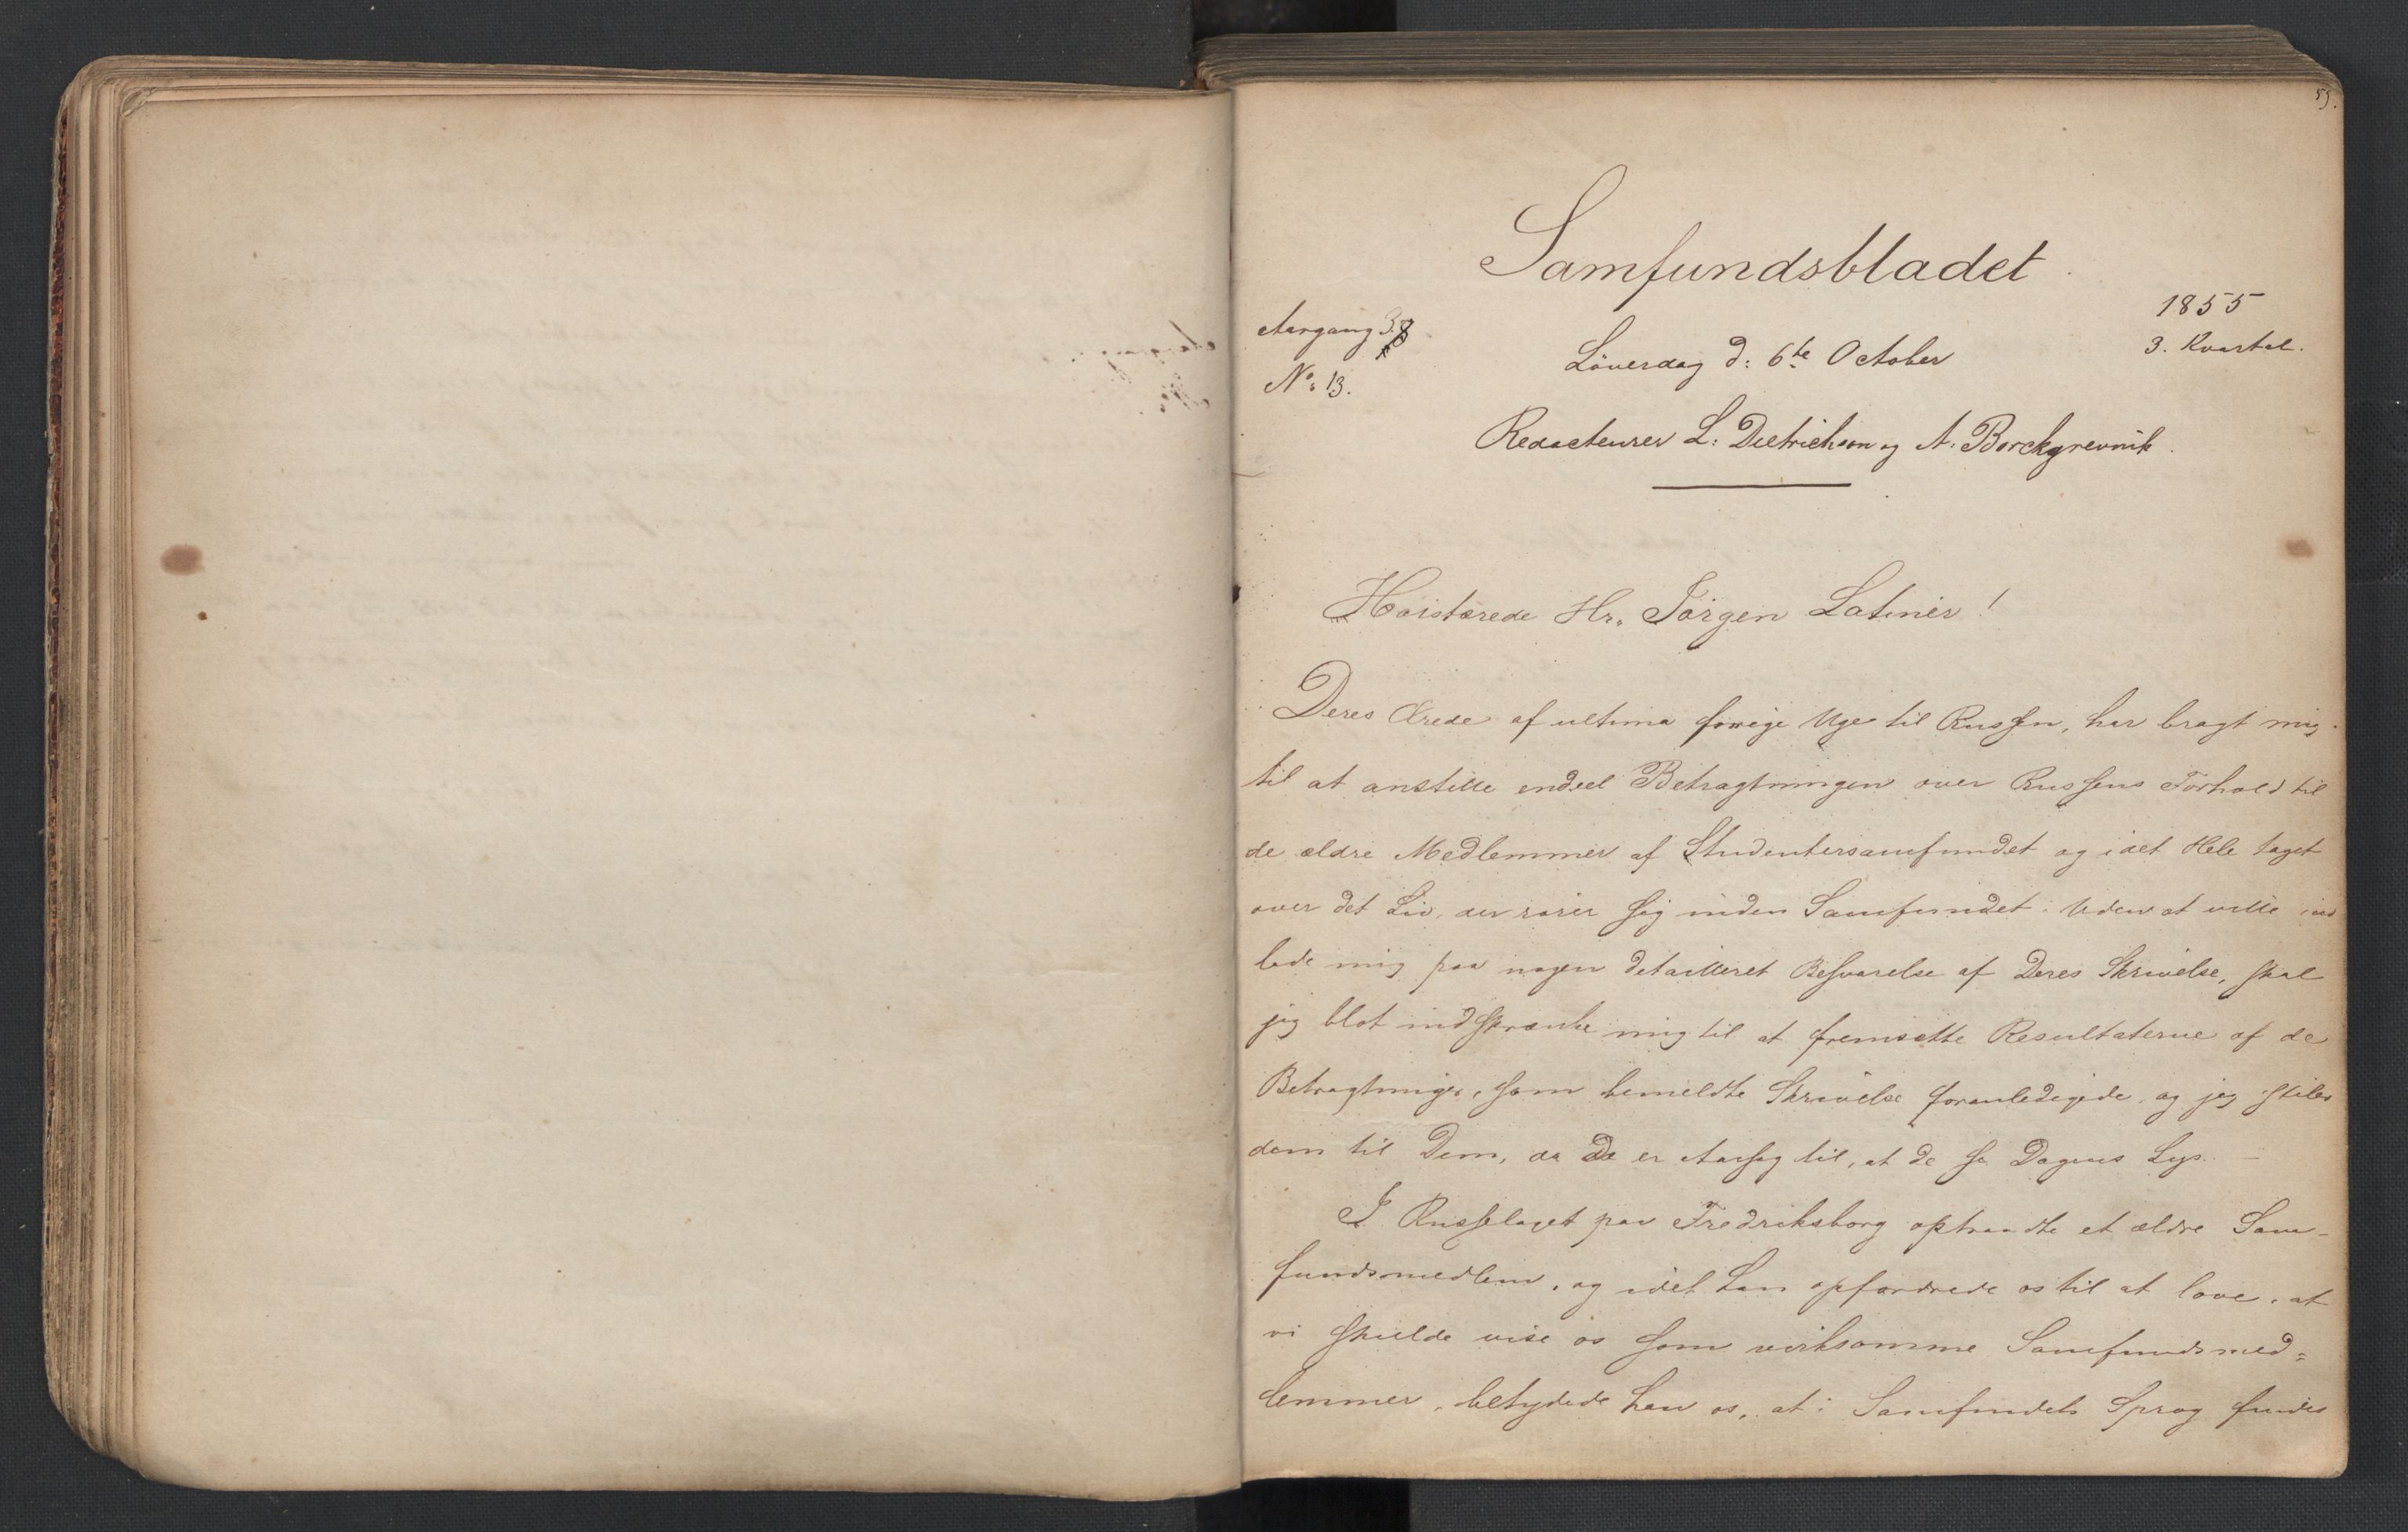 59.
Samfundsbladet
1855
Aargang 3.
Löverdag d: 6te October
3. Kvartal.
No: 13.
Redacteurer L: Dietrichson og A. Borchgrevink.
Høistærede Hr. Jörgen Latiner!
Deres Ærede af ultima forrige Uge til Russen, har bragt mig
til at anstille endeel Betragtninger over Russens Forhold til
de ældre Medlemmer af Studentersamfundet og i det Hele taget
over det Liv, der rører sig inden Samfundet. Uden at ville ind
lade mig paa nogen detailleret Besvarelse af Deres Skrivelse, skal
jeg blot indskrænke mig til at fremsætte Resultaterne af de
Betragtninger, som bemeldte Skrivelse foranledigede, og jeg stiler
dem til Dem, da De er Aarsag til, at de se Dagens Lys. —
I Russelaget paa Fredriksborg optraadte et ældre Sam-
fundsmedlem, og idet han opfordrede os til at love, at
vi skulde vise os som virksomme Samfundsmed=
lemmer, betydede han os, at i Samfundets Sprog findes